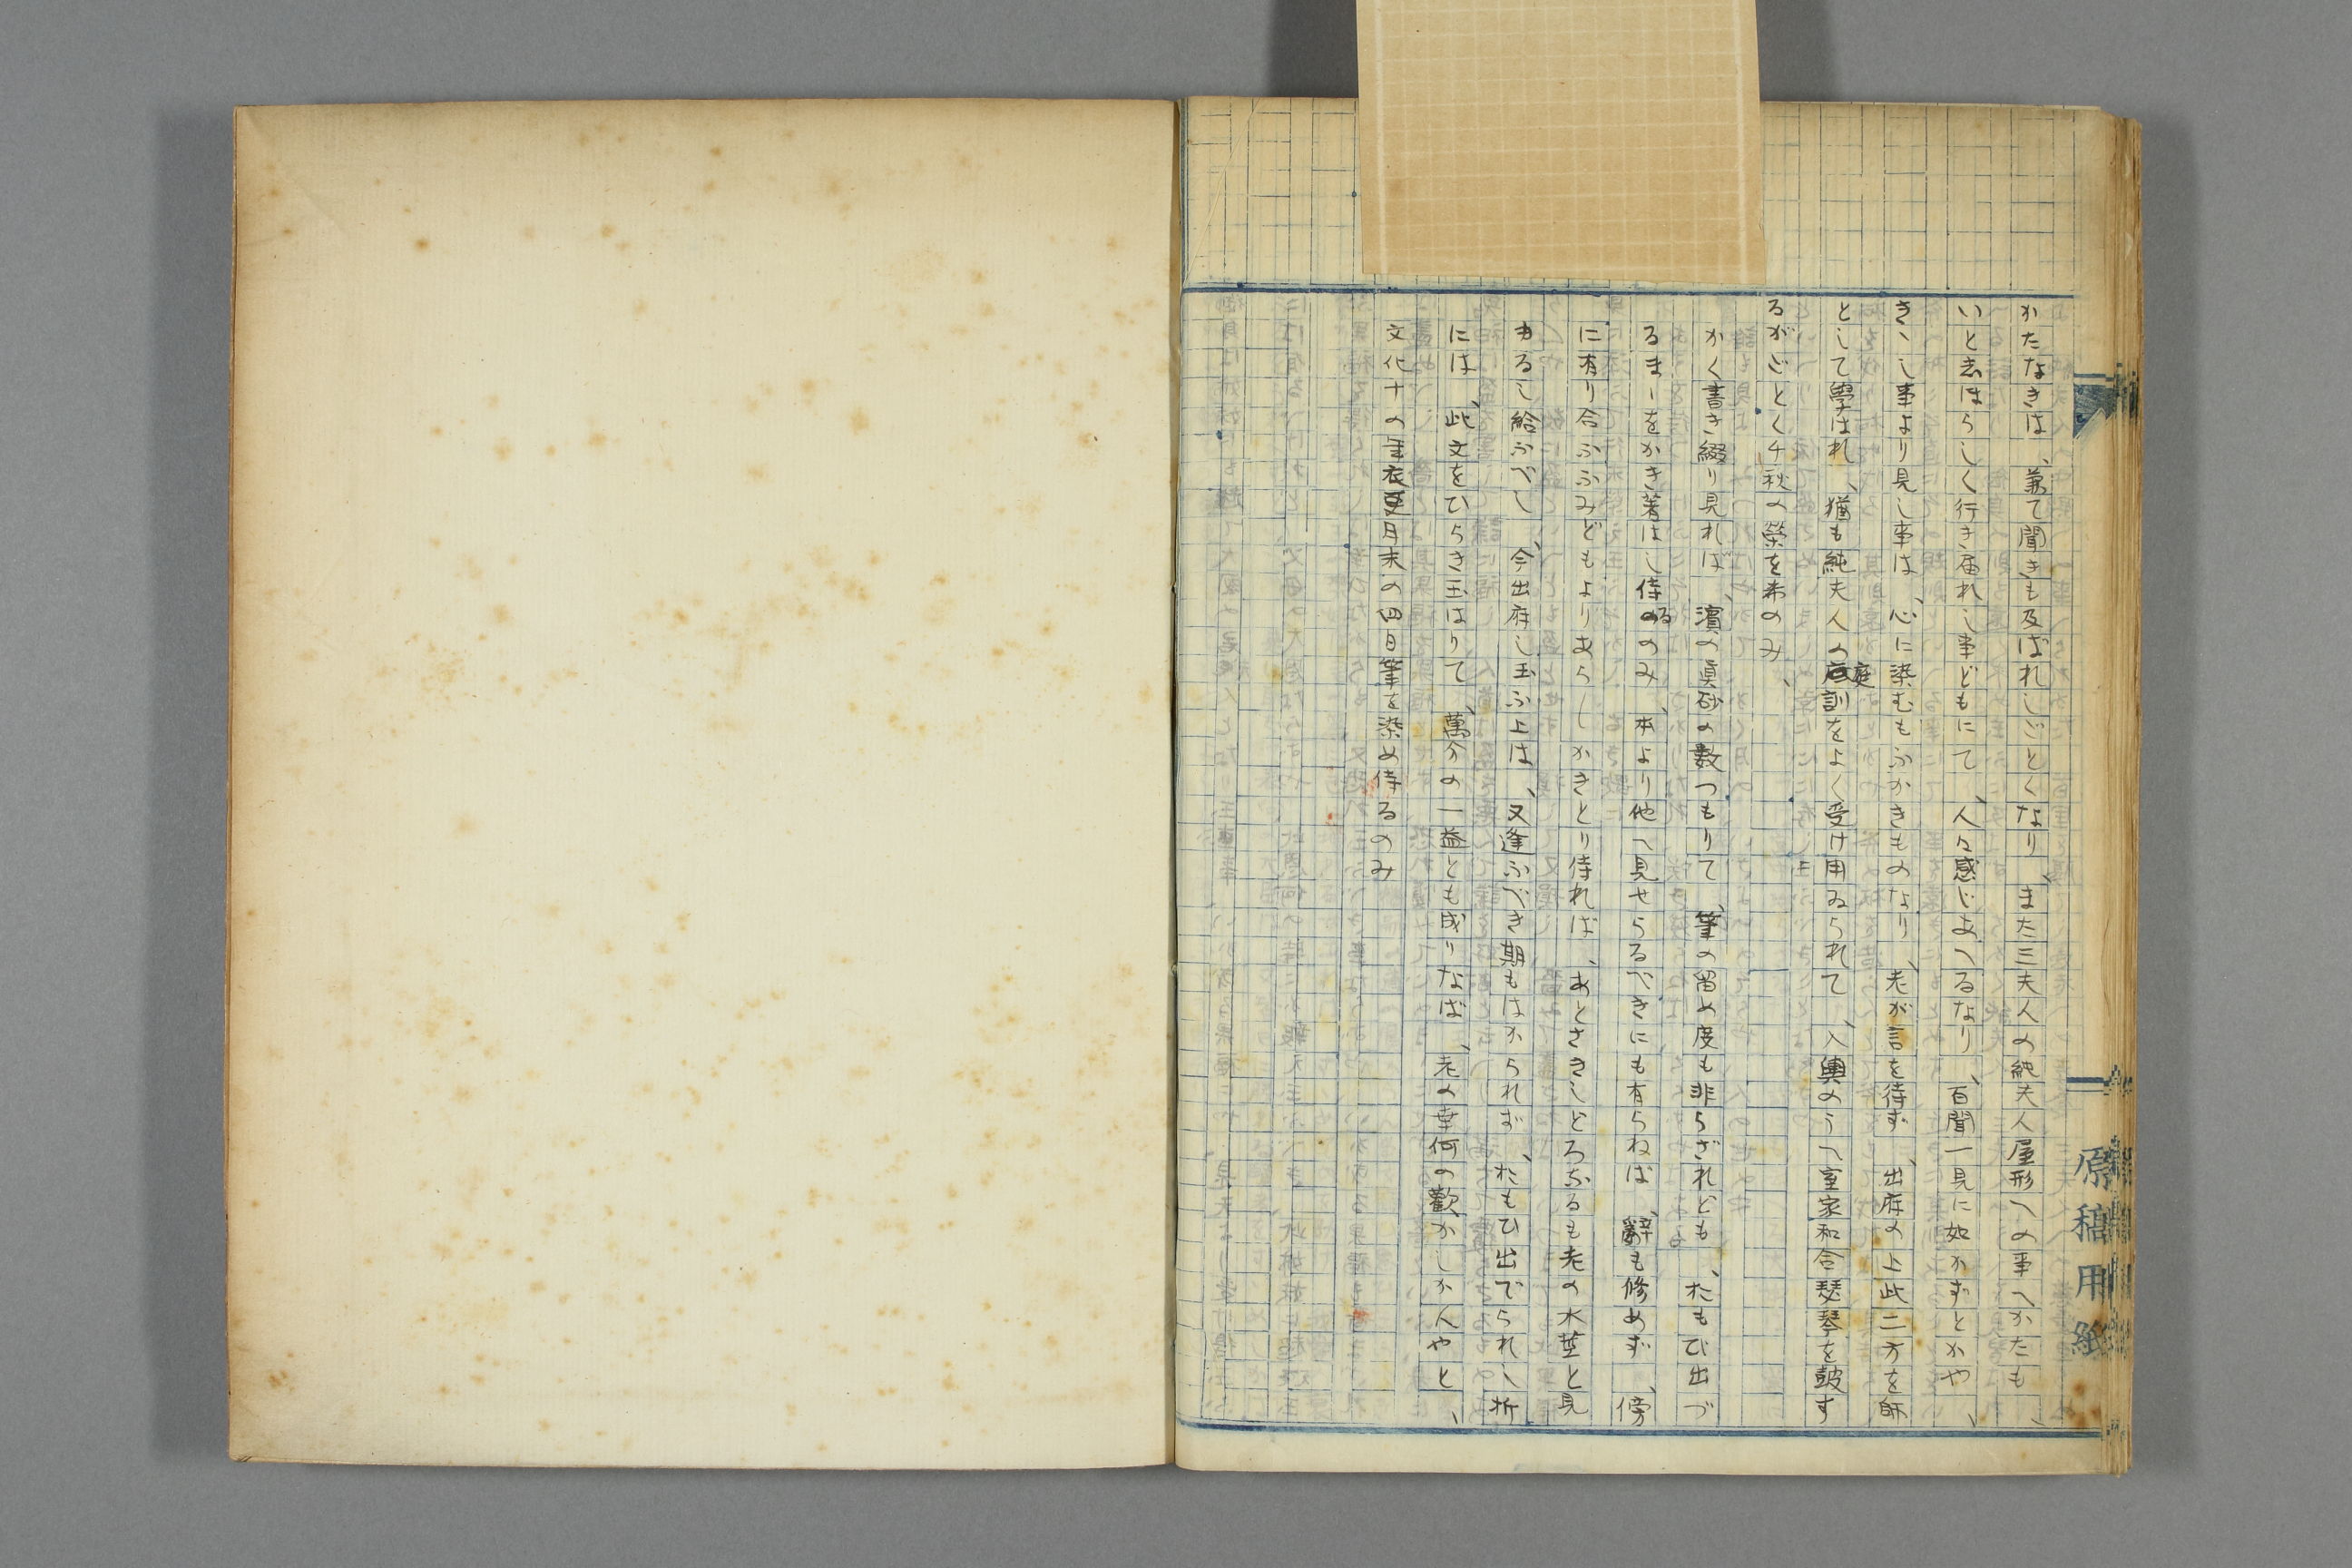 かたなきは、兼て聞きも及ばれしごとくなり、また三夫人の純夫人屋形への事へかたも、
いと志ほらしく行き届れし事どもにて、人々感じあへるなり、百聞一見に如かずとかや、
きゝし事より見し事は、心に染むもふかきものなり、老が言を待ず、出府の上此二方を師
として學はれ、猶も純夫人の庭訓をよく受け用ゐられて、入輿のうへ室家和合瑟琴を皷す
るがごとく千秋の榮を希のみ、
かく書き綴り見れば、濱の眞砂の数つもりて、筆の留め度も非らざれども、おもひ出づ
るまゝをかき著はし侍るのみ、本より他へ見せらるべきにも有らねば、辭も修めず、傍
に有り合ふふみどもよりあらしかきとり侍れば、あとさきしどろなるも老の水莖と見
ゆるし給ふべし、今出府し玉ふ上は、又逢ふべき期もはかられず、おもひ出でられし折
には、此文をひらき玉はりて、萬分の一益とも成りなば、老の幸何の歡かしかんやと、
文化十の年衣更月末の四日筆を染め侍るのみ
原稿用紙